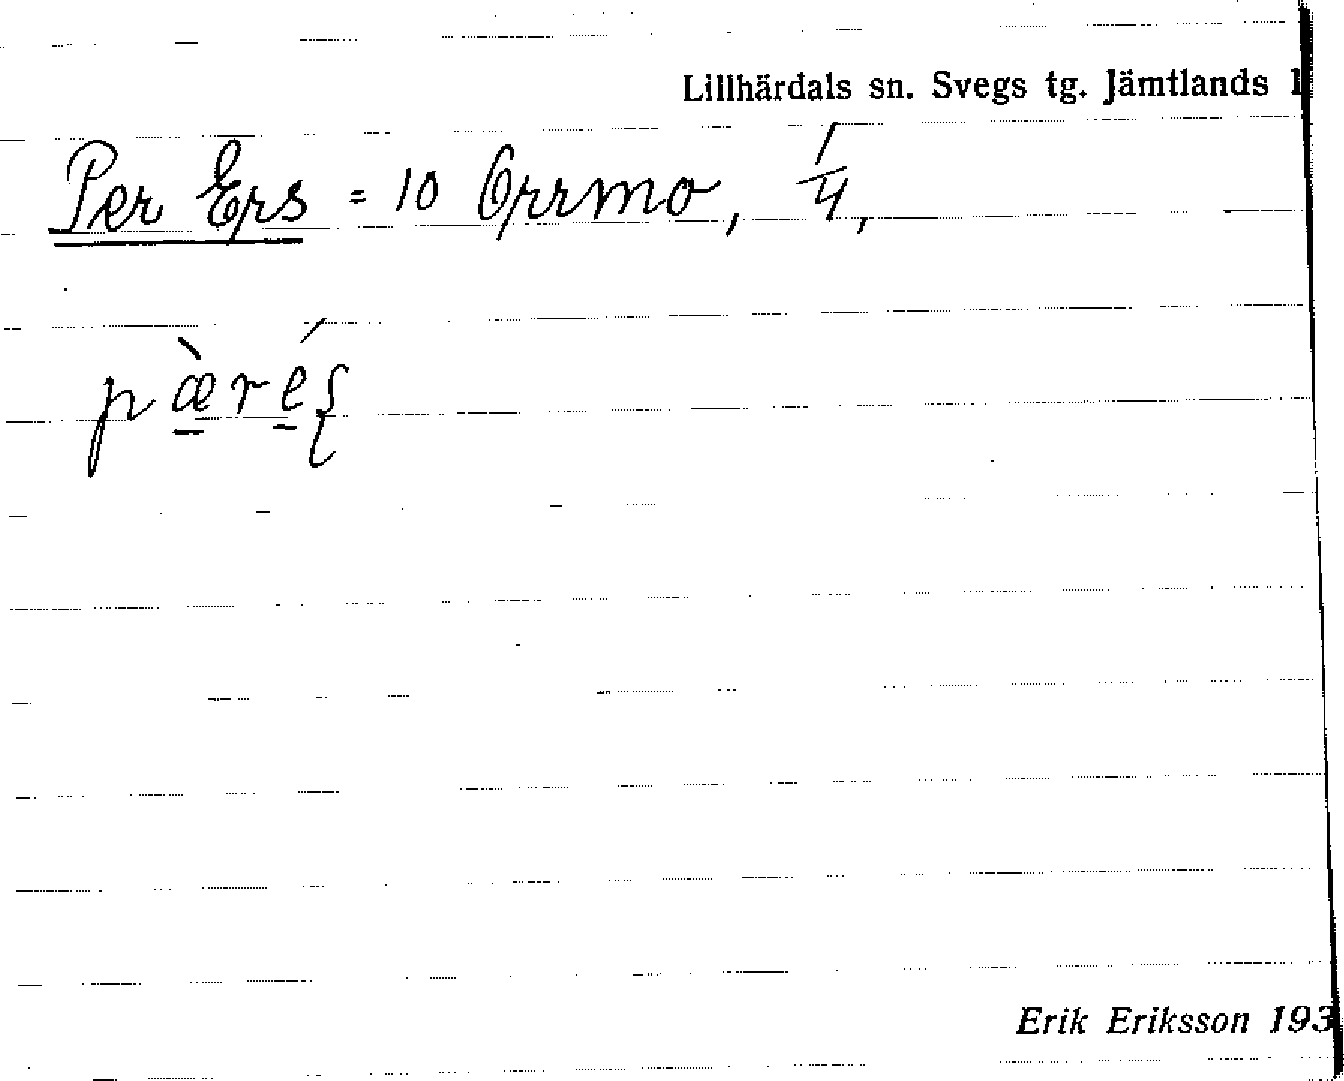 Lillhärdals sn. Svegs tg. Jämtlands l
Per Ers = 10 Orrmo, 1/4,
pæ̀réş
Erik Eriksson 193